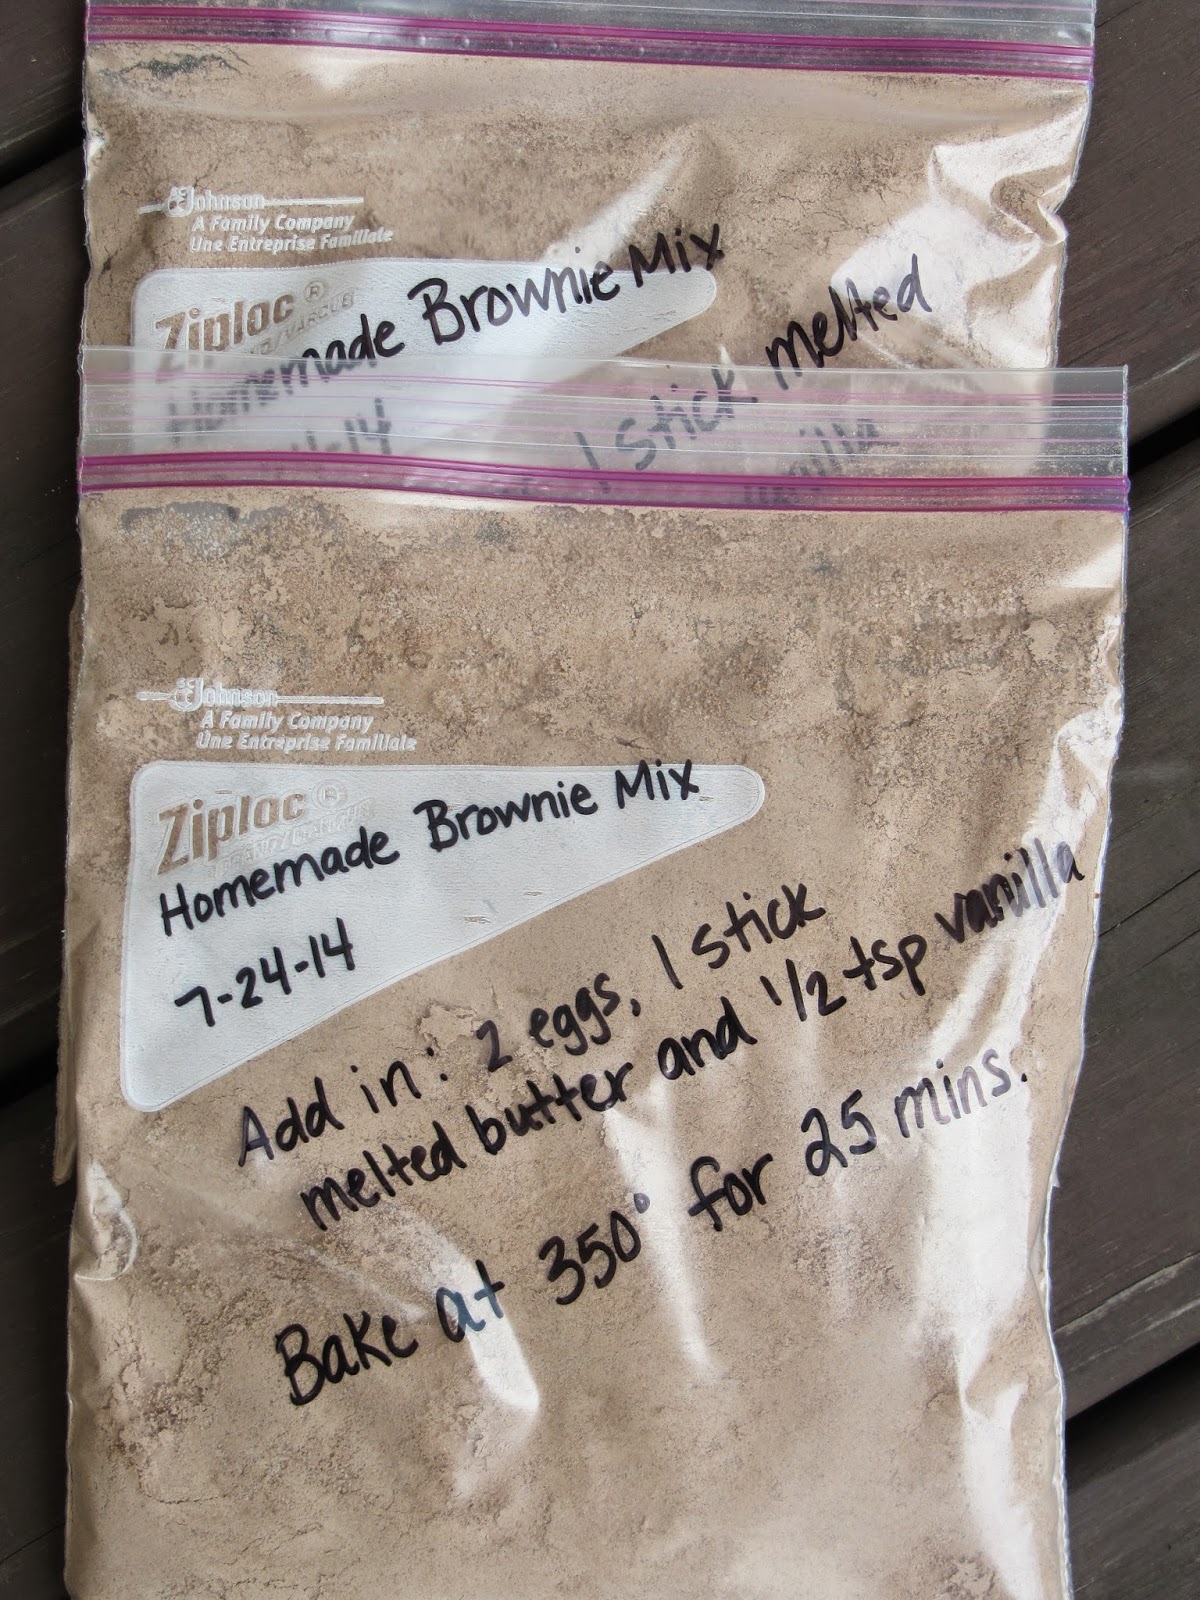 SC Johnson
A Family Company
Une Entreprise Familiale
Ziploc ®
Homemade Brownie Mix
1 stick melted
vanilla
SC Johnson
A Family Company
Une Entreprise Familiale
Ziploc ®
Homemade Brownie Mix
7-24-14
Add in: 2 eggs, 1 stick
melted butter and 1/2 tsp vanilla
Bake at 350° for 25 mins.